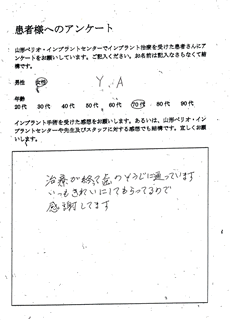 患者様へのアンケート
山形ペリオ・インプラントセンターでインプラント治療を受けた患者さんにア
ンケートをお願いしています。ご記入ください。お名前は記入なさらなくて結
構です。
男性 女性 Y.A
年齢
20代 30代 40代 50代 60代 70代 80代 90代
インプラント手術を受けた感想をお願いします。あるいは、山形ペリオ・イン
プラントセンターや先生及びスタッフに対する感想でも結構です。宜しくお願
いします。
治療が終て歯のそうじに通っています
いつもきれいにしてもらってるので
感謝してます